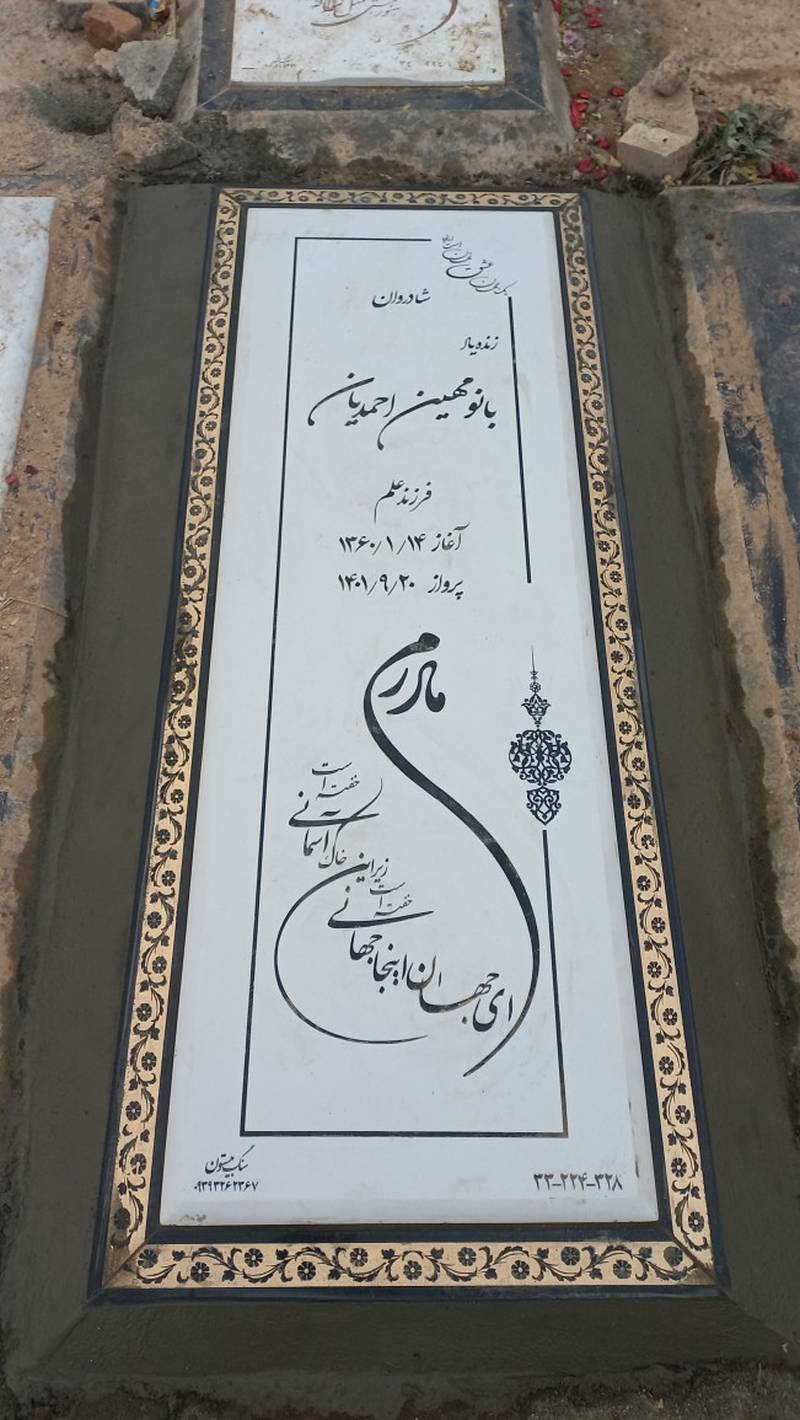 شادروان
زنده یاد
بانو مهین احمدیان
فرزند علم
آغاز ۱۳۶۰/۱/۱۴
پرواز ۱۴۰۱/۹/۲۰
مادرم
ای جهان اینجا جهانی خفته است
زیر این خاک آسمانی خفته است
۳۳-۲۲۴-۳۲۸
سنگ بیستون
۰۹۳۹۳۲۶۲۳۶۷